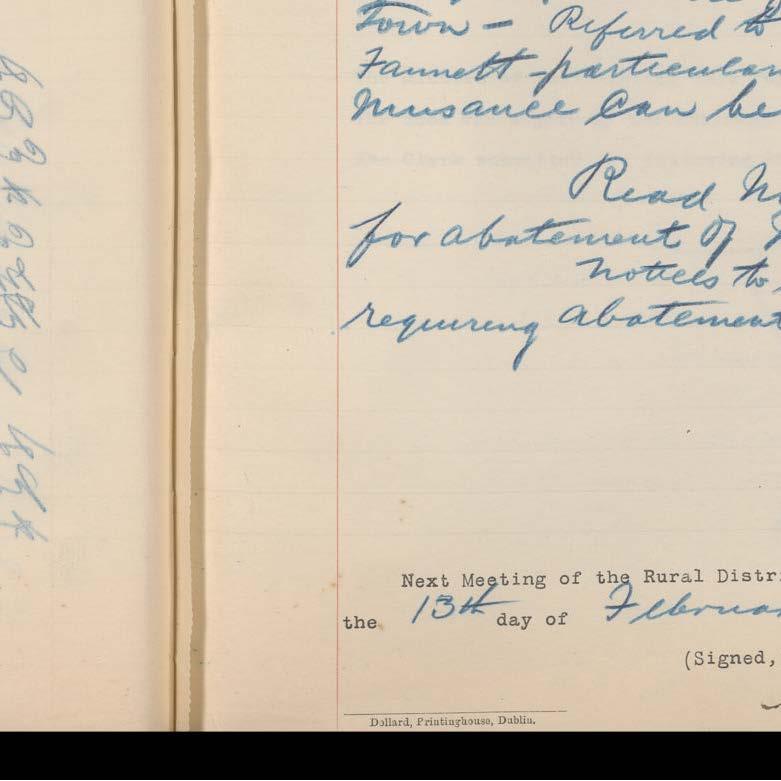 Town - Referred to
Fannett particular
Nuisance Can be
Read
for abatement of
notices to
requiring abatement
Next Meeting of the Rural Distri
the 13th day of Februa
(Signed,
Dollard, Printinghouse, Dublin.